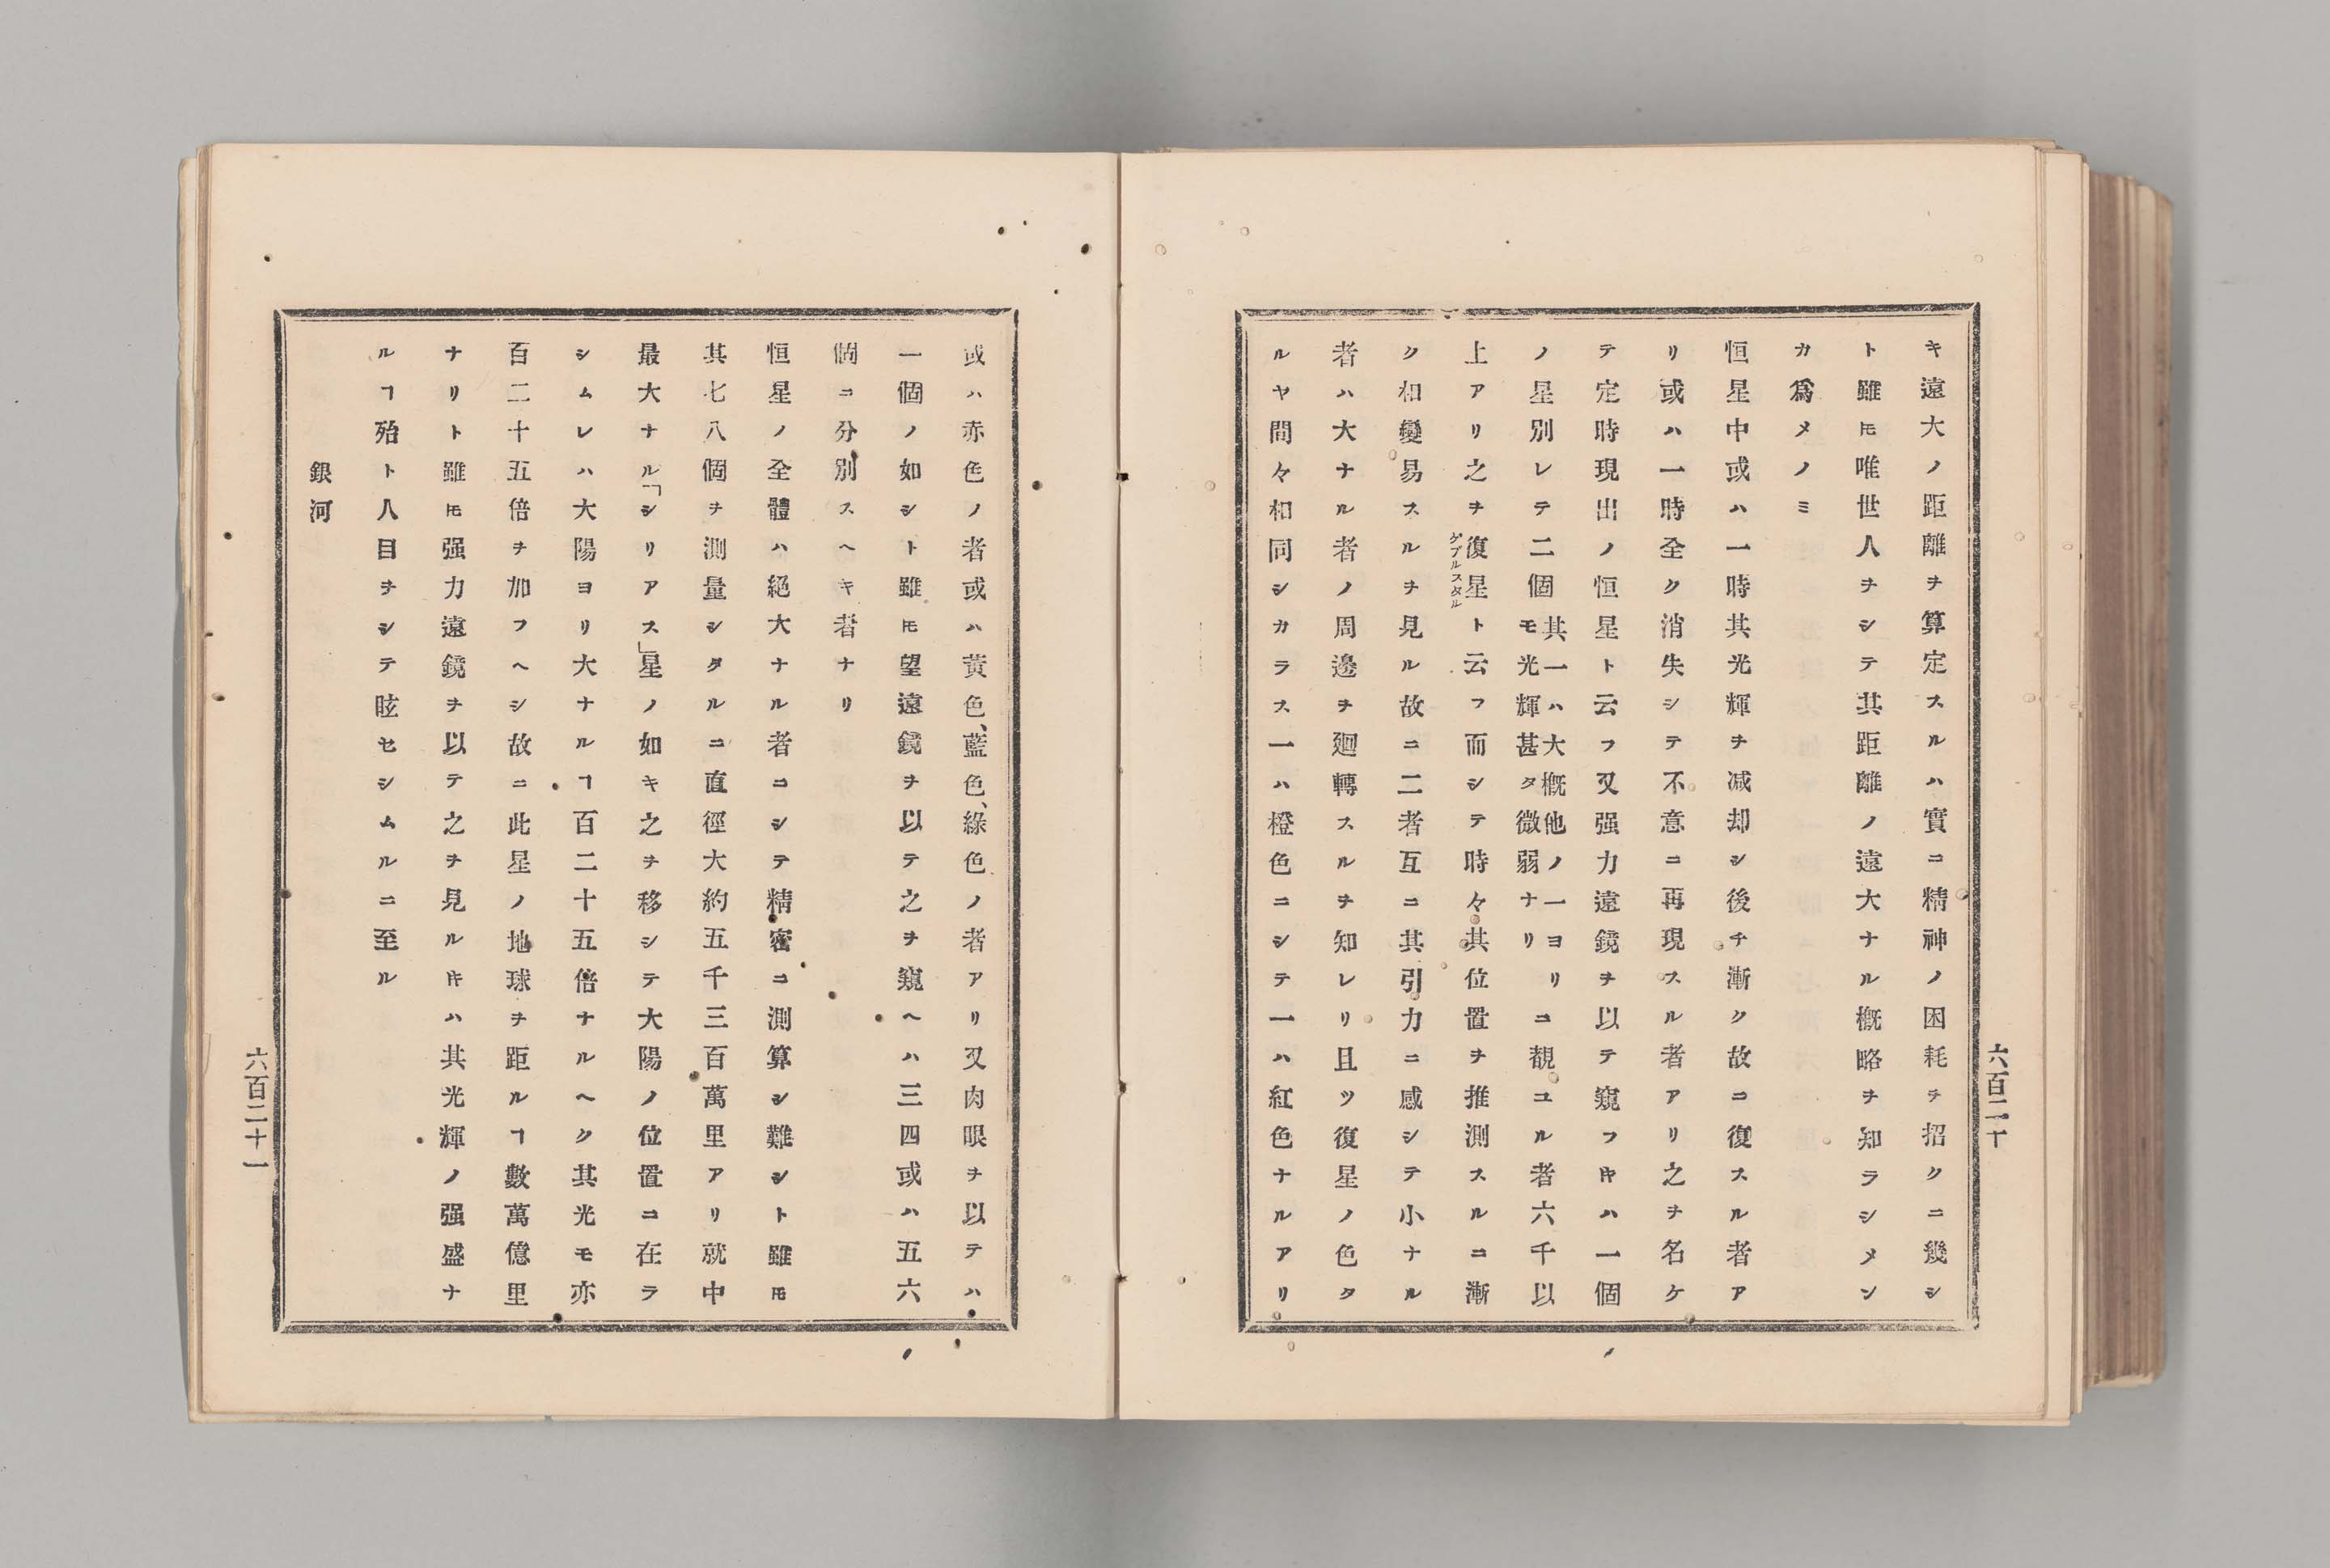 キ遠大ノ距離ヲ算定スルハ實ニ精神ノ困耗ヲ招クニ幾シ
ト雖𪜈唯世人ヲシテ其距離ノ遠大ナル概略ヲ知ラシメン
カ爲メノミ
恒星中或ハ一時其光輝ヲ减却シ後チ漸ク故ニ復スル者ア
リ或ハ一時全ク消失シテ不意ニ再現スル者アリ之ヲ名ケ
テ定時現出ノ恒星ト云フ又强力遠鏡ヲ以テ窺フキハ一個
ノ星別レテ二個其一ハ大概他ノ一ヨリモ光輝甚タ微弱ナリニ覩ユル者六千以
上アリ之ヲ復星ゲブルスタルト云フ而シテ時々其位置ヲ推測スルニ漸
ク相變易スルヲ見ル故ニ二者互ニ其引力ニ感シテ小ナル
者ハ大ナル者ノ周邊ヲ廻轉スルヲ知レリ且ツ復星ノ色タ
ルヤ間々相同シカラス一ハ橙色ニシテ一ハ紅色ナルアリ
六百二十
或ハ赤色ノ者或ハ黃色、藍色、綠色ノ者アリ又肉眼ヲ以テハ
一個ノ如シト雖𪜈望遠鏡ヲ以テ之ヲ窺ヘハ三四或ハ五六
個ニ分別スヘキ者ナリ
恒星ノ全體ハ絕大ナル者ニシテ精密ニ測算シ難シト雖𪜈
其七八個ヲ測量シタルニ直徑大約五千三百萬里アリ就中
最大ナル「シリアス」星ノ如キ之ヲ移シテ大陽ノ位置ニ在ラ
シムレハ大陽ヨリ大ナルヿ百二十五倍ナルヘク其光モ亦
百二十五倍ヲ加フヘシ故ニ此星ノ地球ヲ距ルヿ數萬億里
ナリト雖𪜈强力遠鏡ヲ以テ之ヲ見ルキハ其光輝ノ强盛ナ
ルヿ殆ト人目ヲシテ眩セシムルニ至ル
銀河
六百二十一